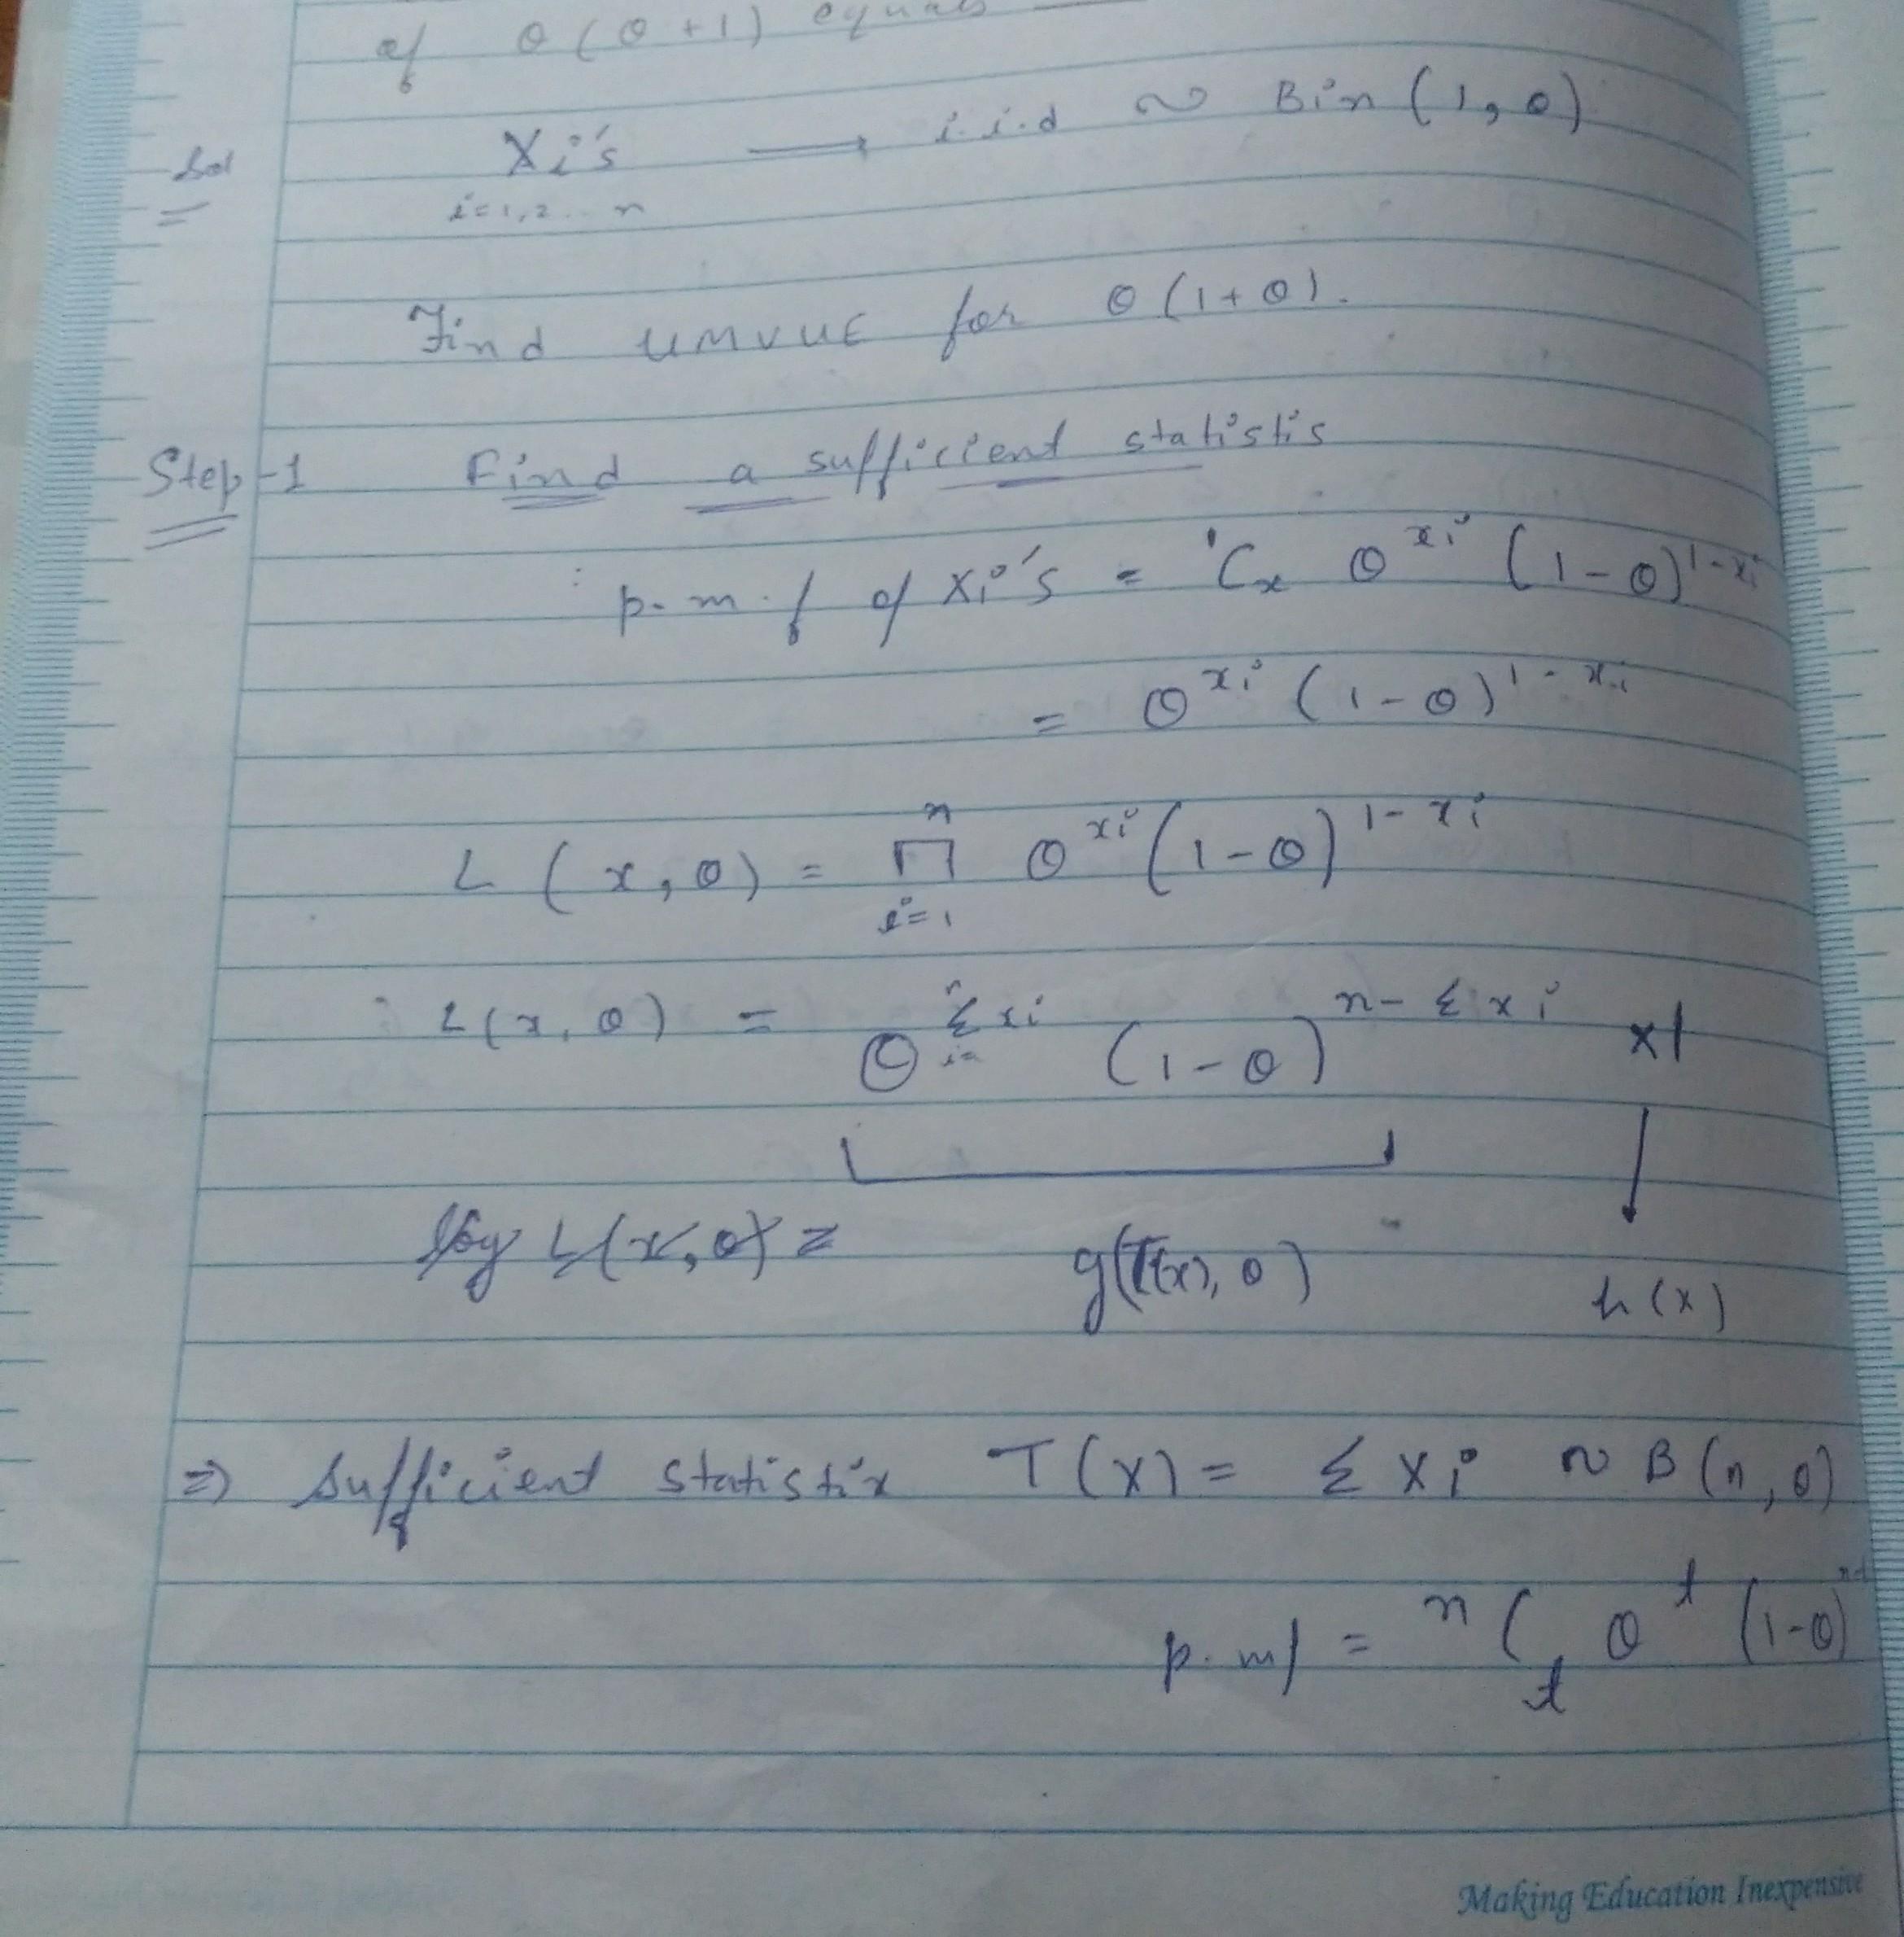 of θ(θ+1) equals
Sol Xi's → i.i.d ~ Bin(1,θ)
i=1,2...n
Find UMVUE for θ(1+θ).
Step-1 Find a sufficient statistis
p.m.f of Xi's = ¹Cₓ θ^xi (1-θ)^1-xi
= θ^xi (1-θ)^1-xi
L(x,θ) = n∏i=1 θ^xi (1-θ)^1-xi
∴ L(x,θ) = θ^Σxi (1-θ)^n-Σxi ×1
log L(x,θ) = g(T(x),θ) h(x)
⇒ Sufficient statistix T(X) = ΣXi ~ B(n,θ)
p.mf = ⁿCt θ^t (1-θ)^n-t
Making Education Inexpensive